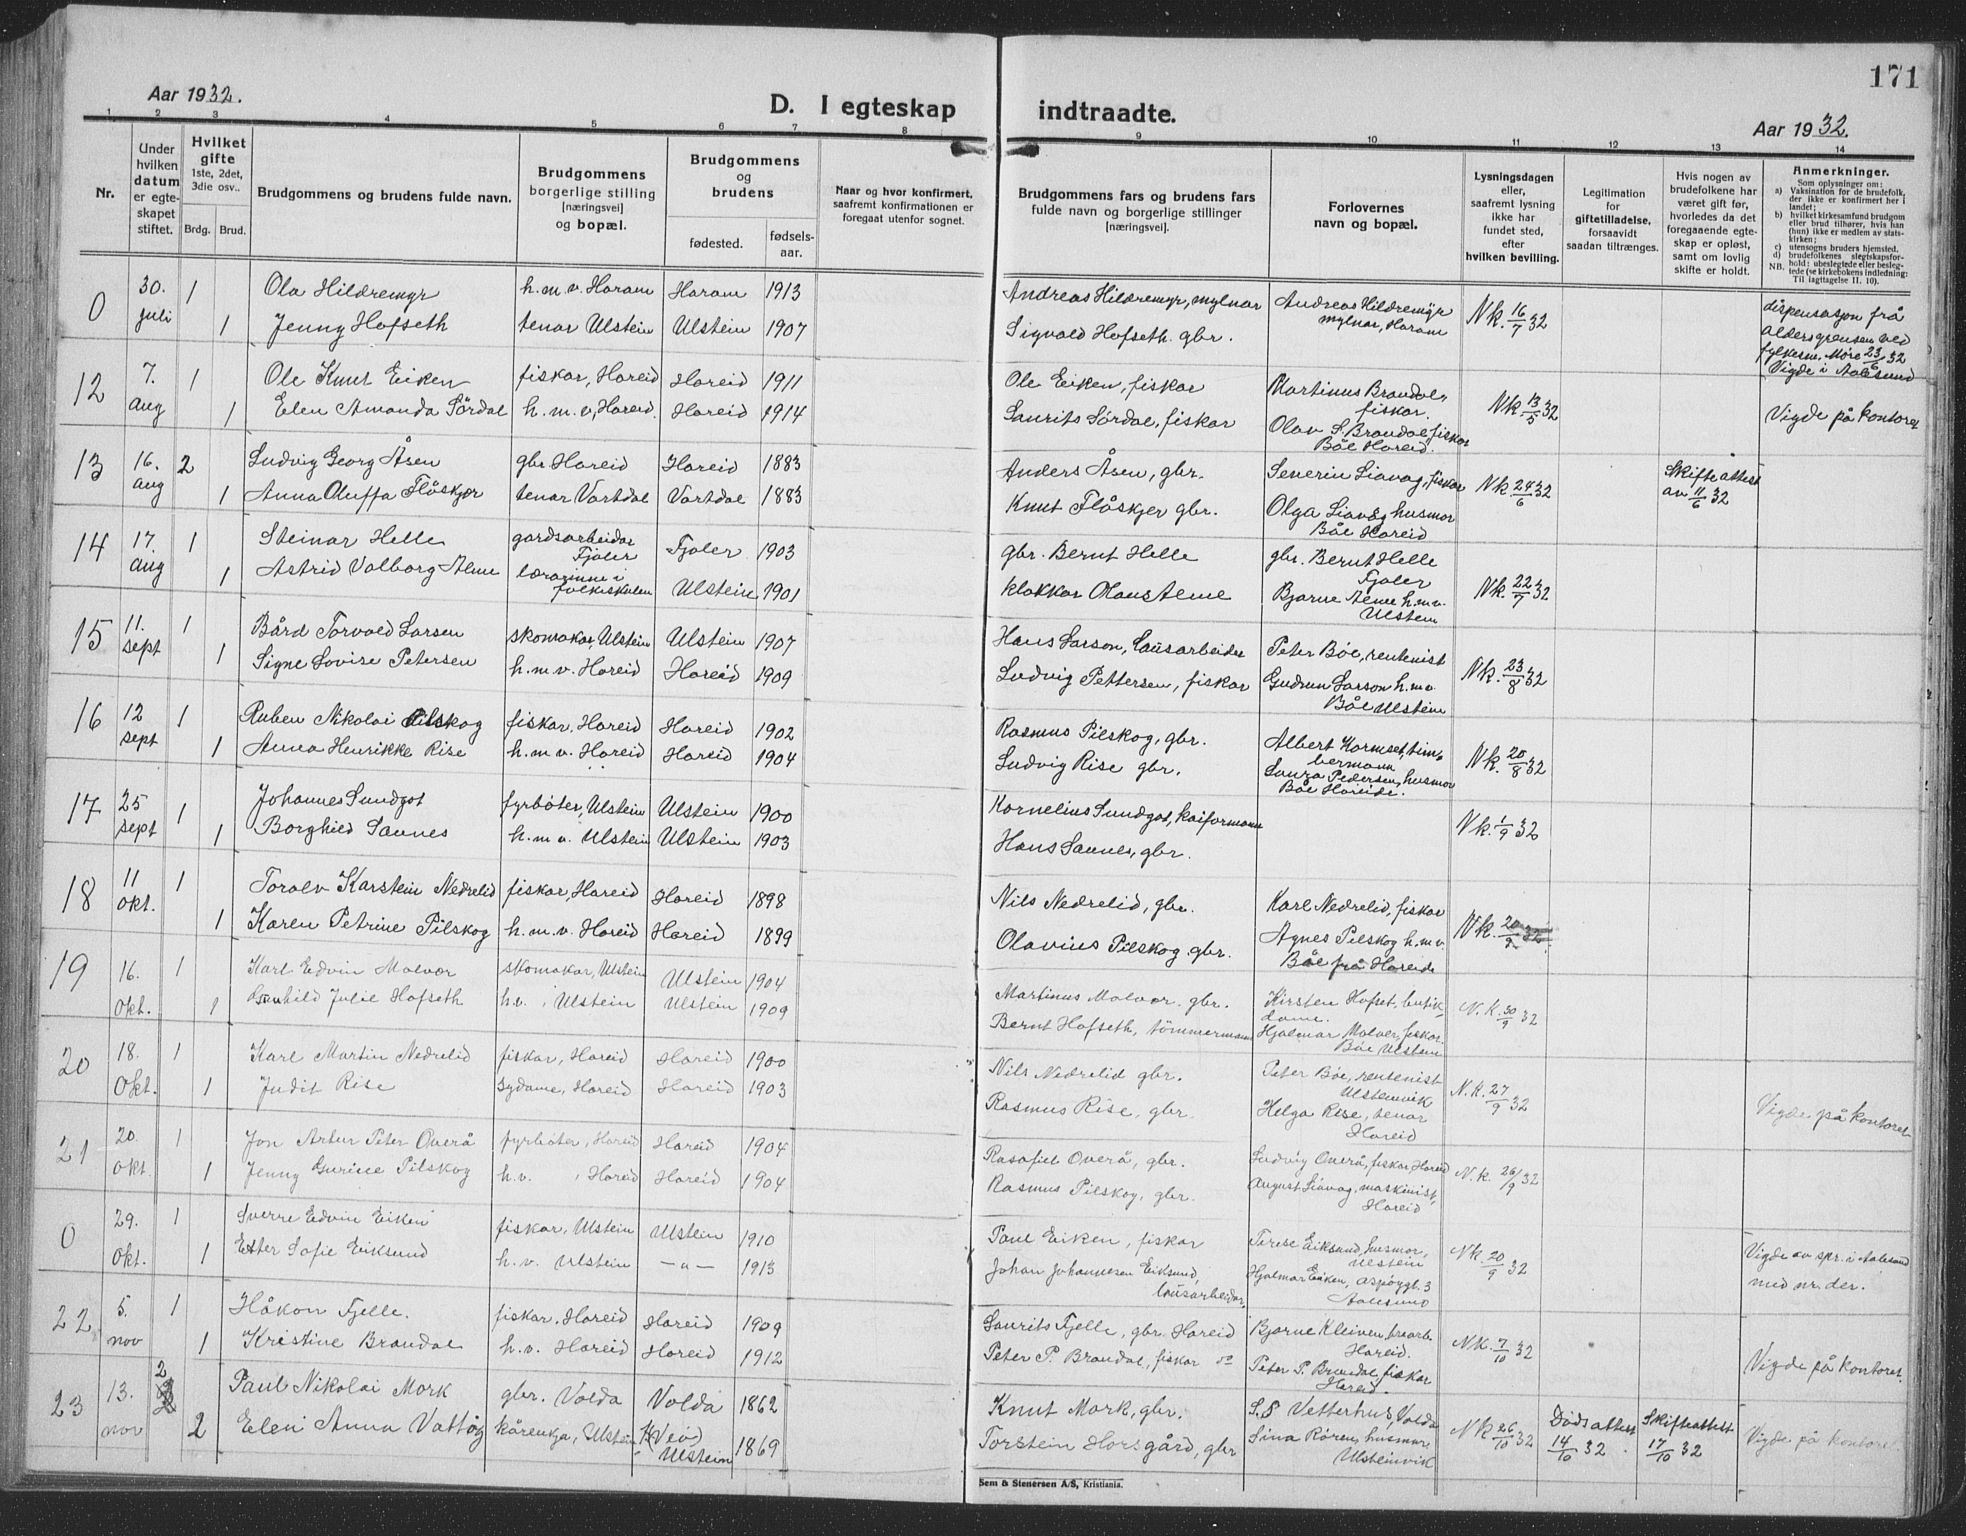 171
Aar 1932.
D. I egteskap
indtraadte.
Aar 1932.
1 2 3 4 5 6 7 8 9 10 11 12 13 14
Nr.
Under hvilken datum er egteskapet stiftet.
Hvilket gifte 1ste, 2det, 3die osv..
Brdg. Brud.
Brudgommens og brudens fulde navn.
Brudgommens borgerlige stilling [næringsvei] og bopæl.
Brudgommens og brudens
fødested. fødselsaar.
Naar og hvor konfirmert, saafremt konfirmationen er foregaat utenfor sognet.
Brudgommens fars og brudens fars fulde navn og borgerlige stillinger [næringsvei].
Forlovernes navn og bopæl.
Lysningsdagen eller, saafremt lysning ikke har fundet sted, efter hvilken bevilling.
Legitimation for giftetilladelse, forsaavidt saadan tiltrænges.
Hvis nogen av brudefolkene har været gift før, hvorledes da det foregaaende egteskap er opløst, samt om lovlig skifte er holdt.
Anmerkninger.
Som oplysninger om:
a) Vaksination for de brudefolk, der ikke er konfirmert her i landet;
b) hvilket kirkesamfund brudgom eller brud tilhører, hvis han (hun) ikke er medlem av statskirken;
c) utensogns bruders hjemsted.
d) brudefolkenes slegtskapsforhold: ubeslegtede eller beslegtede (se kirkebokens indledning: NB. Til iagttagelse II. 10).
0 30. juli 1 Ola Hildremyr h.m.v. Haram Haram 1913 Andreas Hildremyr, mylnar Andreas Hildremyr mylnar, Haram Nk. 16/7 32 dispensasjon frå
1 Jenny Hofseth tenar Ulstein Ulstein 1907 Sigvald Hofseth. gbr. aldersgrensen ved fylkesm. Møre 23/6 32 Vigde i Aalesund
12 7. aug 1 Ole Knut Eiken fiskar, Hareid Hareid 1911 Ole Eiken, fiskar Martinus Brandal, fiskar. Nk 13/5 32 Vigde på kontoret
1 Elen Amanda Sördal h.m.v, Hareid. Hareid 1914 Laurits Sørdal, fiskar Olav S. Brandal fiskar Båe Hareid.
13 16. aug 2 Ludvig Georg Åsen gbr Hareid Hareid 1883 Anders Åsen, gbr. Severin Liavag, fiskar Nk. 24/6 32 Skifteattest av 11/6 32
1 Anna Oluffa Flåskjer tenar Vartdal Vartdal 1883 Knut Flåskjer gbr. Olga Liavåg husmor Båe Hareid
14 17. aug 1 Steinar Helle gardsarbeidar Fjaler Fjaler 1903 gbr. Bernt Helle gbr. Bernt Helle Fjaler Nk. 22/7 32
1 Astrid Valborg Alme lærarinne i folkeskulen Ulstein 1901 klokkar Olaus Alme Bjarne Alme h.m.v. Ulstein
15 11. sept 1 Bård Torvald Larsen skomakar, Ulstein Ulstein 1907 Hans Larson, lausarbeider Peter Bøe, rentenist Nk. 23/8 32
1 Signe Lovise Petersen h.m.v. Hareid Hareid 1909 Ludvig Pettersen, fiskar Gudrun Larson h.m.v. Båe Ulstein
16 12 sept 1 Ruben Nikolai Pilskog fiskar, Hareid Hareid 1902 Rasmus Pilskog, gbr. Albert Kormset, timbermann Nk. 20/8 32
1 Anna Henrikke Rise h.m.v. Hareid Hareid 1904 Ludvig Rise gbr. Laura Pedersen, husmor Båe Hareide.
17 25 sept 1 Johannes Sundgot fyrbøter, Ulstein Ulstein 1900 Kornelius Sundgot, kaiformann Nk. 1/9 32
1 Borghied Saunes h.m.v. Ulstein Ulstein 1903 Hans Saunes, gbr.
18 11 okt. 1 Toralv Karstein Nedrelid fiskar, Hareid Hareid 1898 Nils Nedrelid, gbr. Karl Nedrelid, fiskar Nk. 20/9 32.
1 Karen Petrine Pilskog h.m.v. Hareid Hareid 1899 Olavius Pilskog gbr. Agnes Pilskog h.m.v. Båe frå Hareide
19 16. okt. 1 Karl Edvin Malvar skomakar, Ulstein Ulstein 1904 Martinus Malvar. gbr. Kirsten Hofset, butikdame. N.k. 30/9 32
1 Gunhild Julie Hofseth h.v. Ulstein Ulstein 1909 Bernt Hofseth, tömmermann Hjalmar Malver, fiskar. Båe Ulstein
20 18. okt. 1 Karl Martin Nedrelid fiskar, Hareid Hareid 1900 Nils Nedrelid gbr. Peter Bøe, rentenist Ulsteinvik N.k. 27/9 32 Vigde på kontoret
1 Judit Rise sydame, Hareid Hareid 1903 Rasmus Rise, gbr. Helga Rise, tenar Hareid
21 20. okt. 1 Jon Artur Peter Overå fyrbøter, Hareid Hareid 1904 Rasafiel Overå, gbr. Ludvig Overå, fiskar, Hareid N.k. 26/9 32
1 Jenny Gurine Pilskog h.v. , Hareid Hareid 1904 Rasmus Pilskog, gbr. August Liavag, maskinist, Hareid
0 29. okt. 1 Sverre Edvin Eiken fiskar, Ulstein Ulstein 1910 Paul Eiken, fiskar Terese Eiksund, husmor, Ulstein Nk. 20/9 32 Vigde av spr. i Aalesund med nr. der.
1 Ester Sofie Eiksund h.v. Ulstein - " - 1913 Johan Johannesen Eiksund, lausarbeidar Hjalmar Eiken, Aspøygt. 3 Aalesund
22 5. nov 1 Håkon Fjelle. fiskar, Hareid Hareid 1909 Laurits Fjelle, gbr. Hareid Bjarne Kleiven, Hareid. Nk. 7/10 32 Vigde på kontoret.
1 Kristine Brandal h.v. Hareid Hareid 1912 Peter P. Brandal, fiskar do Peter P. Brandal, fiskar Hareid.
23 13. nov 2 Paul Nikolai Mork gbr. Volda Volda 1862 Knut Mork, gbr. Vetterhus, Volda Nk 26/10 32 Dødsattest 14/10 32. Skifteattest 17/10 32 Vigde på kontoret.
2 Elen Anna Vattøy kårenkja, Ulstein Ulstein 1869 Torstein Horsgård, gbr Sina Røren, husmor Ulsteinvik
Sem & Stenersen A/S, Kristiania.